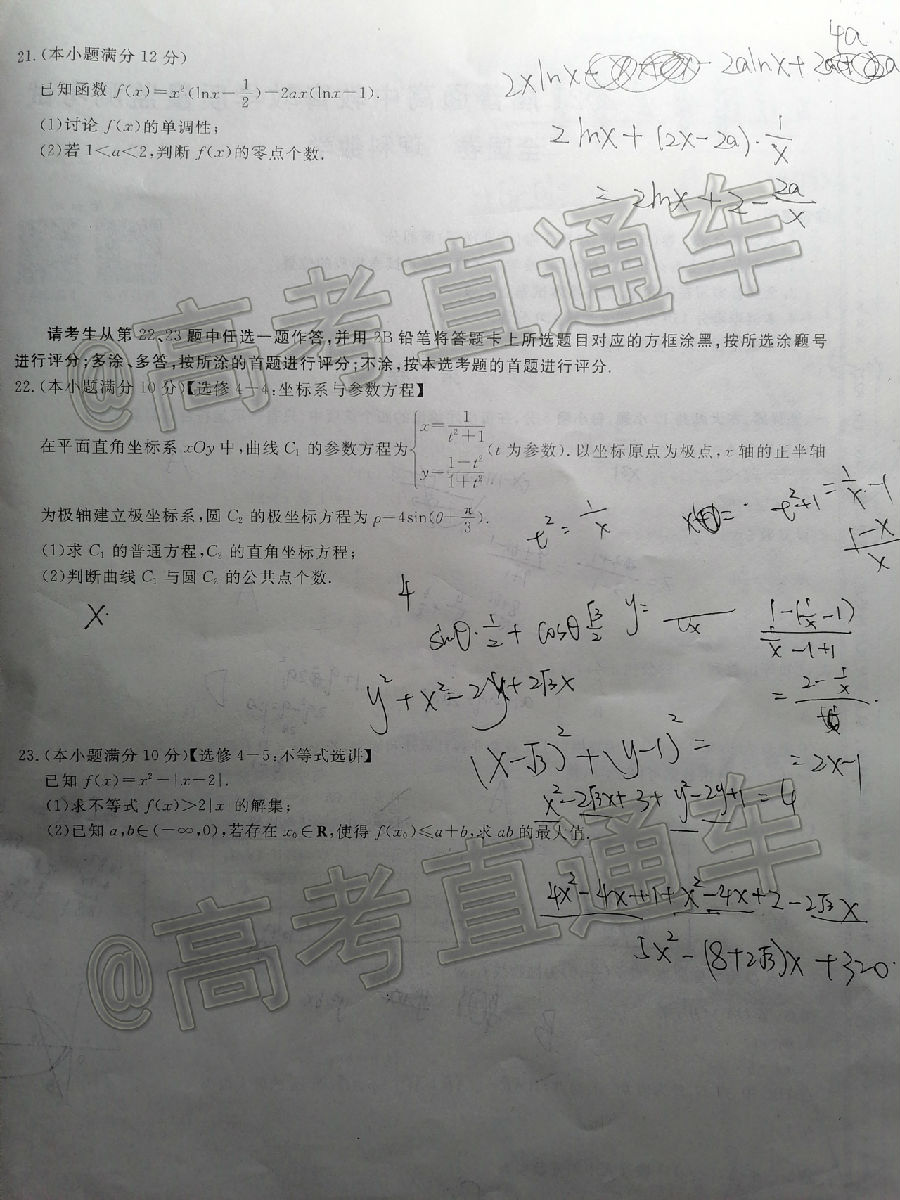 21.(本小题满分12分)
已知函数 f(x)=x²(lnx-1/2)-2ax(lnx-1).
(1)讨论 f(x)的单调性;
(2)若1<a<2,判断 f(x)的零点个数.
4a
2xlnx
-2alnx+
2lnx+(2x-2a)·1/x
=2lnx+2-2a/x
请考生从第22、23题中任选一题作答,并用2B铅笔将答题卡上所选题目对应的方框涂黑,按所选涂题号
进行评分;多涂、多答,按所涂的首题进行评分;不涂,按本选考题的首题进行评分.
22.(本小题满分10分)【选修4-4:坐标系与参数方程】
在平面直角坐标系 xOy 中,曲线 C₁ 的参数方程为{x=1/(t²+1) y=(1-t²)/(1+t²) (t为参数).以坐标原点为极点,x轴的正半轴
为极轴建立极坐标系,圆 C₂ 的极坐标方程为 ρ=4sin(θ-π/3).
(1)求 C₁ 的普通方程,C₂ 的直角坐标方程;
(2)判断曲线 C₁ 与圆 C₂ 的公共点个数.
t²=1/x
t²+1=1/x-1
(1-x)/x
x·
4
sinθ·1/2+cosθ√3/2
y=
y²+x²=2y+2√3x
=2x-1
(x-√3)²+(y-1)²=
x²-2√3x+3+y²-2y+1=4
23.(本小题满分10分)【选修4-5:不等式选讲】
已知 f(x)=x²-|x-2|.
(1)求不等式 f(x)>2|x|的解集;
(2)已知 a,b∈(-∞,0),若存在 x₀∈R,使得 f(x₀)≤a+b,求 ab 的最大值.
4x²-4x+1+x²-4x+2-2√3x
5x²-(8+2√3)x+3=0
@高考直通车
@高考直通车